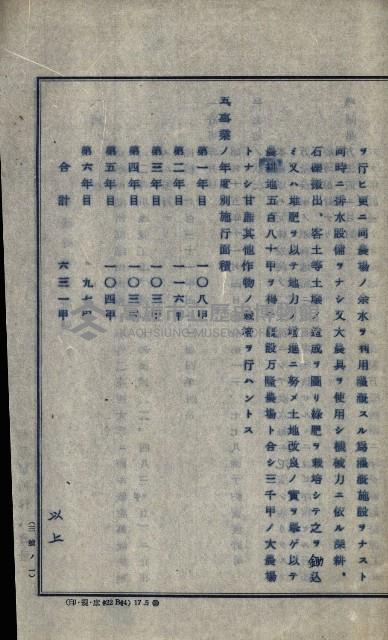 ヲ行ヒ更ニ同農場ノ余水ヲ利用灌漑スル爲灌漑施設ヲナスト
同時ニ排水設備ヲナシ又大農具ヲ使用シ機械力ニ依ル深耕、
石礫搬出、客土等土壤ノ造成ヲ圖リ綠肥ヲ栽培シテ之ヲ鋤込
ミ又ハ堆肥ヲ以テ地力ノ增進ニ努メ土地改良ノ實ヲ擧ゲ以テ
農耕地五百八十甲ヲ得、既設万隆農場ト合シ三千甲ノ大農場
トナシ甘蔗其他作物ノ栽培ヲ行ハントス
五、事業ノ年度別施行面積
第一年目 一〇八甲
第二年目 一一六甲
第三年目 一〇三
第四年目 一〇三
第五年目 一〇四甲
第六年目 九七甲
合計 六三一甲
以上
(三號ノ一)
(印・現・東 422 B44) 17.5
KAOHSIUNG MUSEUM